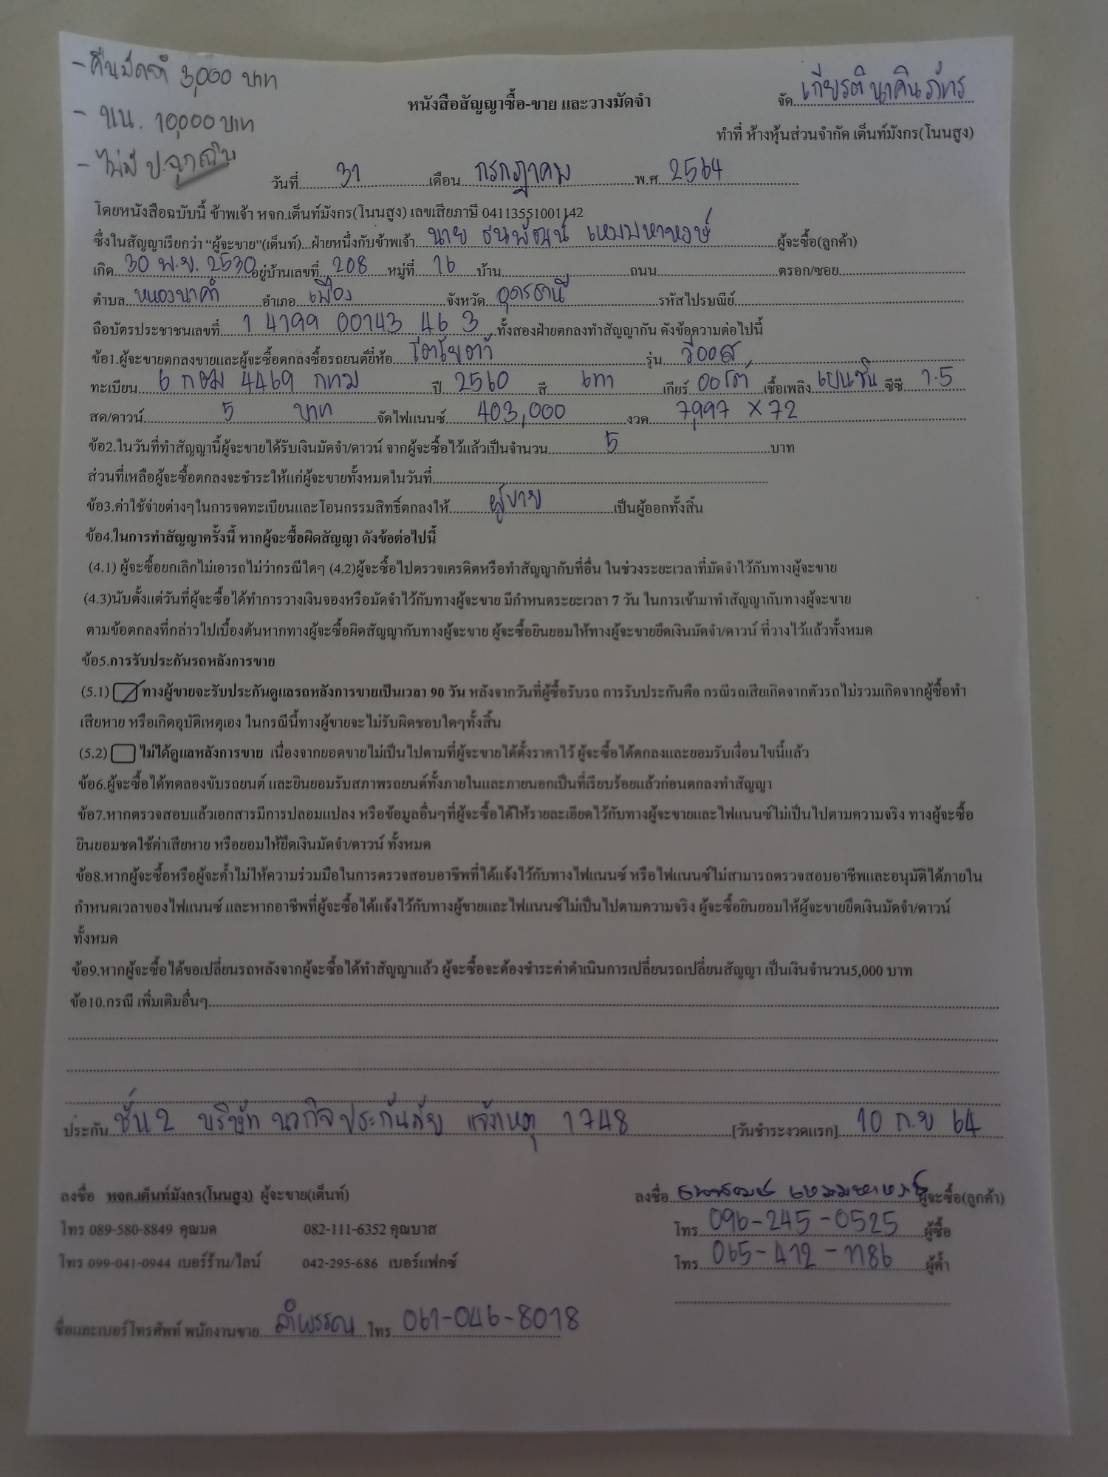 - คืนมัดจำ 3,000 บาท
- นน. 10,000 บาท
- ไม่มี ป.ฉุกเฉิน
หนังสือสัญญาซื้อ-ขาย และวางมัดจำ
จัด เกียรตินาคินภัทร
ทำที่ ห้างหุ้นส่วนจำกัด เต็นท์มังกร(โนนสูง)
วันที่ 31 เดือน กรกฎาคม พ.ศ 2564
โดยหนังสือฉบับนี้ ข้าพเจ้า หจก.เต็นท์มังกร(โนนสูง) เลขเสียภาษี 04113551001142
ซึ่งในสัญญาเรียกว่า "ผู้จะขาย"(เต็นท์)...ฝ่ายหนึ่งกับข้าพเจ้า นาย ธนพัฒน์ เหมมหาหงษ์ ผู้จะซื้อ(ลูกค้า)
เกิด 30 พ.ย. 2530 อยู่บ้านเลขที่ 208 หมู่ที่ 16 บ้าน ถนน ตรอก/ซอย
ตำบล หนองนาคำ อำเภอ เมือง จังหวัด อุดรธานี รหัสไปรษณีย์
ถือบัตรประชาชนเลขที่ 1 4199 00143 46 3 ทั้งสองฝ่ายตกลงทำสัญญากัน ดังข้อความต่อไปนี้
ข้อ1.ผู้จะขายตกลงขายและผู้จะซื้อตกลงซื้อรถยนต์ยี่ห้อ โตโยต้า รุ่น วีออส
ทะเบียน 6 กฒม 4469 กทม ปี 2560 สี เทา เกียร์ ออโต้ เชื้อเพลิง เบนซิน ซีซี 1.5
สด/ดาวน์ 5 บาท จัดไฟแนนซ์ 403,000 งวด 7,997 x 72
ข้อ2.ในวันที่ทำสัญญานี้ผู้จะขายได้รับเงินมัดจำ/ดาวน์ จากผู้จะซื้อไว้แล้วเป็นจำนวน 5 บาท
ส่วนที่เหลือผู้จะซื้อตกลงจะชำระให้แก่ผู้จะขายทั้งหมดในวันที่
ข้อ3.ค่าใช้จ่ายต่างๆในการจดทะเบียนและโอนกรรมสิทธิ์ตกลงให้ ผู้ขาย เป็นผู้ออกทั้งสิ้น
ข้อ4.ในการทำสัญญาครั้งนี้ หากผู้จะซื้อผิดสัญญา ดังข้อต่อไปนี้
(4.1) ผู้จะซื้อยกเลิกไม่เอารถไม่ว่ากรณีใดๆ (4.2)ผู้จะซื้อไปตรวจเครดิตหรือทำสัญญากับที่อื่น ในช่วงระยะเวลาที่มัดจำไว้กับทางผู้จะขาย
(4.3)นับตั้งแต่วันที่ผู้จะซื้อได้ทำการวางเงินจองหรือมัดจำไว้กับทางผู้จะขาย มีกำหนดระยะเวลา 7 วัน ในการเข้ามาทำสัญญากับทางผู้จะขาย
ตามข้อตกลงที่กล่าวไปเบื้องต้นหากทางผู้จะซื้อผิดสัญญากับทางผู้จะขาย ผู้จะซื้อยินยอมให้ทางผู้จะขายยึดเงินมัดจำ/ดาวน์ ที่วางไว้แล้วทั้งหมด
ข้อ5.การรับประกันรถหลังการขาย
(5.1) ทางผู้ขายจะรับประกันดูแลรถหลังการขายเป็นเวลา 90 วัน หลังจากวันที่ผู้ซื้อรับรถ การรับประกันคือ กรณีรถเสียเกิดจากตัวรถ ไม่รวมเกิดจากผู้ซื้อทำ
เสียหาย หรือเกิดอุบัติเหตุเอง ในกรณีนี้ทางผู้ขายจะไม่รับผิดชอบใดๆทั้งสิ้น
(5.2) ไม่ได้ดูแลหลังการขาย เนื่องจากยอดขายไม่เป็นไปตามที่ผู้จะขายได้ตั้งราคาไว้ ผู้จะซื้อได้ตกลงและยอมรับเงื่อนไขนี้แล้ว
ข้อ6.ผู้จะซื้อได้ทดลองขับรถยนต์ และยินยอมรับสภาพรถยนต์ทั้งภายในและภายนอกเป็นที่เรียบร้อยแล้วก่อนตกลงทำสัญญา
ข้อ7.หากตรวจสอบแล้วเอกสารมีการปลอมแปลง หรือข้อมูลอื่นๆที่ผู้จะซื้อได้ให้รายละเอียดไว้กับทางผู้จะขายและไฟแนนซ์ไม่เป็นไปตามความจริง ทางผู้จะซื้อ
ยินยอมชดใช้ค่าเสียหาย หรือยอมให้ยึดเงินมัดจำ/ดาวน์ ทั้งหมด
ข้อ8.หากผู้จะซื้อหรือผู้จะค้ำไม่ให้ความร่วมมือในการตรวจสอบอาชีพที่ได้แจ้งไว้กับทางไฟแนนซ์ หรือไฟแนนซ์ไม่สามารถตรวจสอบอาชีพและอนุมัติได้ภายใน
กำหนดเวลาของไฟแนนซ์ และหากอาชีพที่ผู้จะซื้อได้แจ้งไว้กับทางผู้ขายและไฟแนนซ์ไม่เป็นไปตามความจริง ผู้จะซื้อยินยอมให้ผู้จะขายยึดเงินมัดจำ/ดาวน์
ทั้งหมด
ข้อ9.หากผู้จะซื้อได้ขอเปลี่ยนรถหลังจากผู้จะซื้อได้ทำสัญญาแล้ว ผู้จะซื้อจะต้องชำระค่าดำเนินการเปลี่ยนรถเปลี่ยนสัญญา เป็นเงินจำนวน5,000 บาท
ข้อ10.กรณี เพิ่มเติมอื่นๆ
ประกัน ชั้น 2 บริษัท นวกิจประกันภัย แจ้งเหตุ 1748 [วันชำระงวดแรก] 10 ก.ย 64
ลงชื่อ หจก.เต็นท์มังกร(โนนสูง) ผู้จะขาย(เต็นท์) ลงชื่อ ธนพัฒน์ เหมมหาหงษ์ ผู้จะซื้อ(ลูกค้า)
โทร 089-580-8849 คุณมด 082-111-6352 คุณบาส โทร 096-245-0525 ผู้ซื้อ
โทร 099-041-0944 เบอร์ร้าน/ไลน์ 042-295-686 เบอร์แฟกซ์ โทร 065-472-1186 ผู้ค้ำ
ชื่อและเบอร์โทรศัพท์ พนักงานขาย ลำพรรณ โทร 061-046-8018